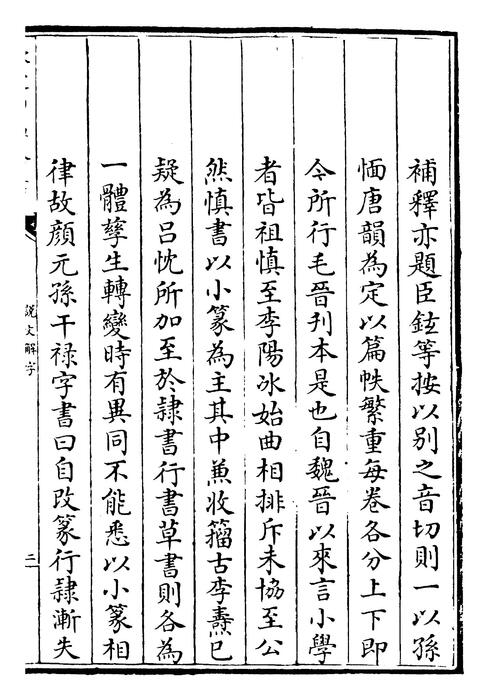 補釋亦題臣鉉等按以别之音切則一以孫
愐唐韻為定以篇帙繁重每卷各分上下即
今所行毛晉刋本是也自魏晉以來言小學
者皆祖慎至李陽冰始曲相排斥未協至公
然慎書以小篆為主其中兼收籀古李燾已
疑為吕忱所加至於隷書行書草書則各為
一體孳生轉變時有異同不能悉以小篆相
律故顔元孫干禄字書曰自改篆行隷漸失
說文解字
三